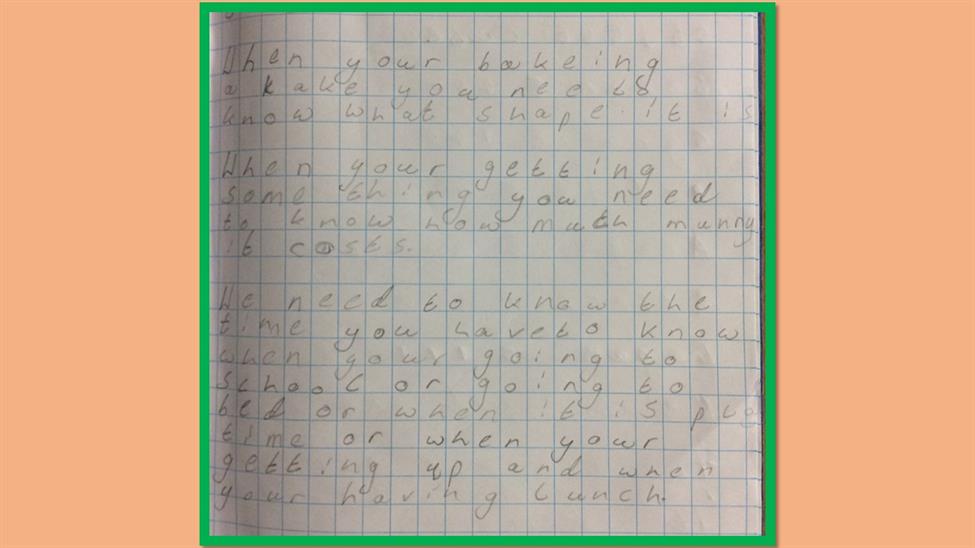 When your bakeing
a kake you nee to
know what shape it is
When your getting
some thing you need
to know how mutch munny
it costs.
We need to know the
time you have to know
when your going to
school or going to
bed or when it is
time or when your
getting up and when
your having lunch.